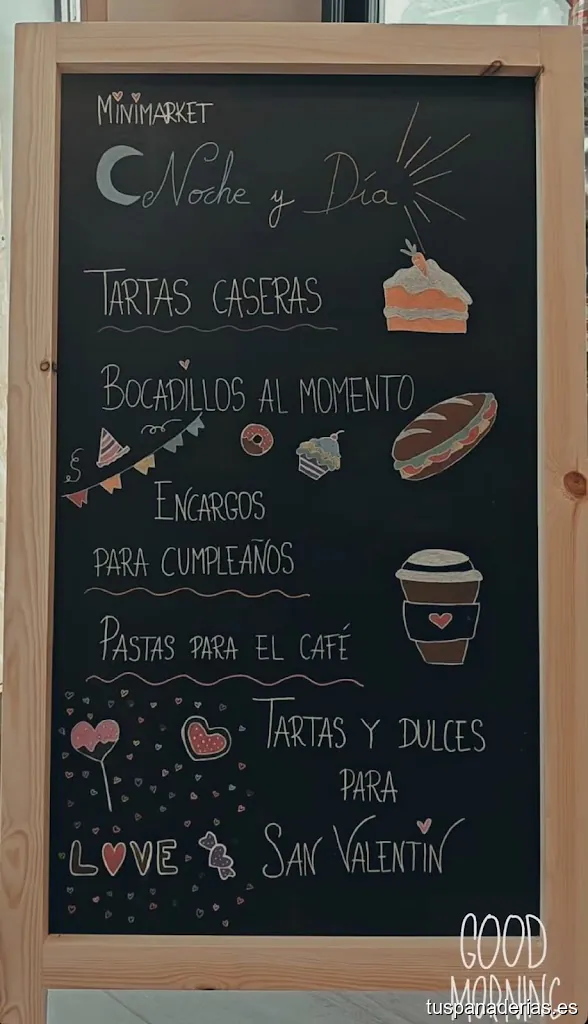 MINIMARKET
Noche y Día
TARTAS CASERAS
BOCADILLOS AL MOMENTO
ENCARGOS
PARA CUMPLEAÑOS
PASTAS PARA EL CAFÉ
TARTAS Y DULCES
PARA
SAN VALENTIN
LOVE
GOOD
MORNING
tuspanaderias.es